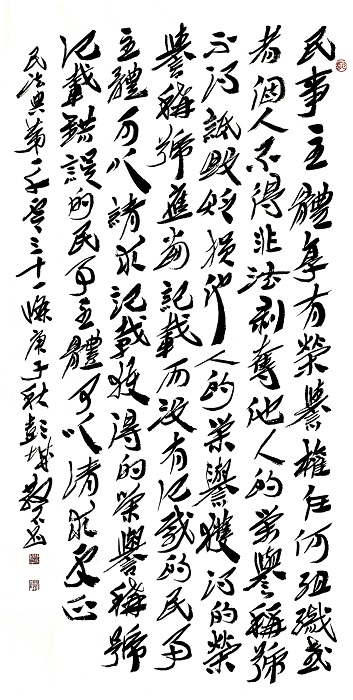 民事主體享有榮譽權任何組織或
者個人不得非法剥奪他人的榮譽稱號
不得詆毀貶損他人的榮譽獲得的榮
譽稱號應當記載而没有記載的民事
主體可以請求記載獲得的榮譽稱號
記載錯誤的民事主體可以請求更正
民法典第一千零三十一條庚子秋彭城